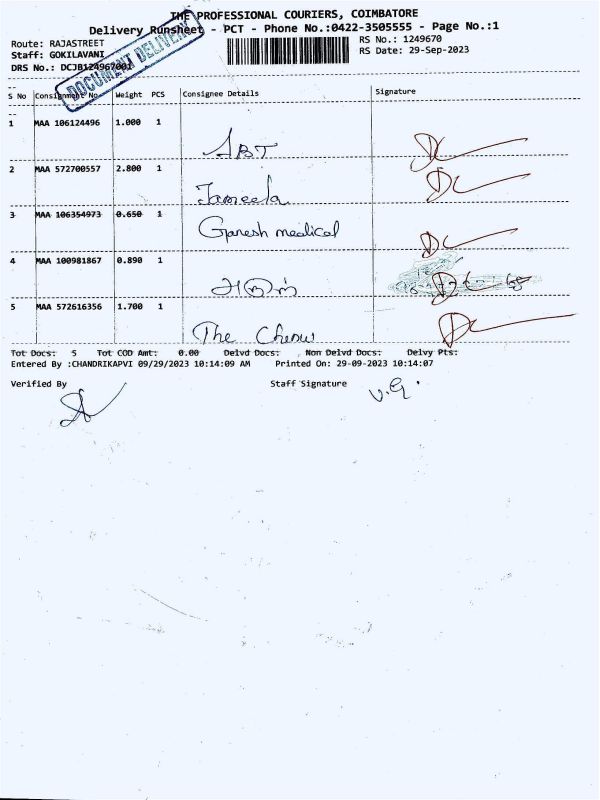 THE PROFESSIONAL COURIERS, COIMBATORE
Delivery Runsheet - PCT - Phone No.:0422-3505555 - Page No.:1
Route: RAJASTREET
RS No.: 1249670
Staff: GOKILAVANI
RS Date: 29-Sep-2023
DRS No.: DCJB1249670D1
DOCUMENT DELIVERY
S No Consignment No. Weight PCS Consignee Details Signature
1 MAA 106124496 1.000 1
ABT
2 MAA 572700557 2.800 1
Jameela
3 MAA 106354973 0.650 1
Ganesh medical
4 MAA 100981867 0.890 1
அருள்
5 MAA 572616356 1.700 1
The
Tot Docs: 5 Tot COD Amt: 0.00 Delvd Docs: Non Delvd Docs: Delvy Pts:
Entered By :CHANDRIKAPVI 09/29/2023 10:14:09 AM Printed On: 29-09-2023 10:14:07
Verified By Staff Signature
V.G.